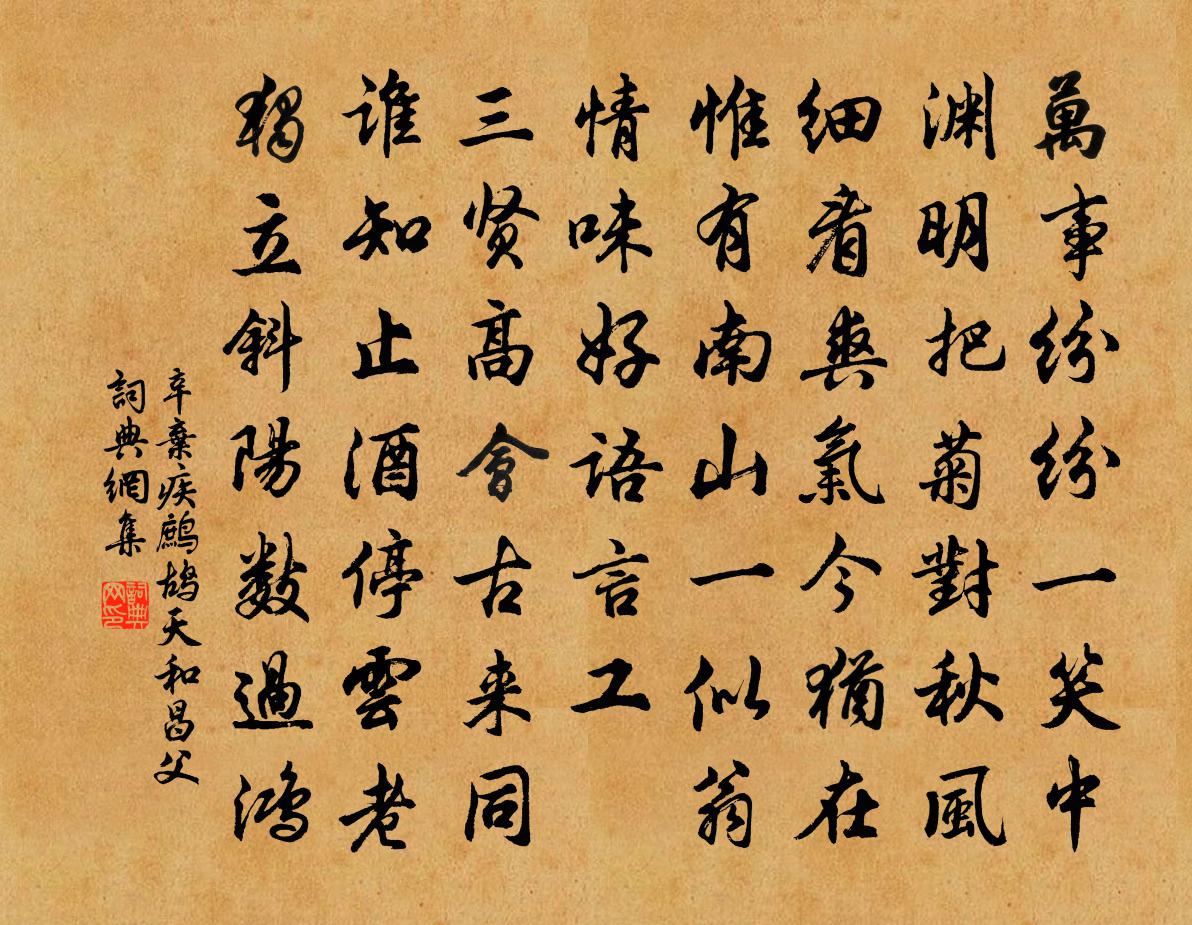 萬事紛紛一笑中
渊明把菊對秋風
细看爽氣今猶在
惟有南山一似翁
情味好語言工
三贤高會古来同
誰知止酒停雲老
獨立斜陽數過鴻
辛棄疾鷓鴣天和昌父
詞典網集
詞典網印